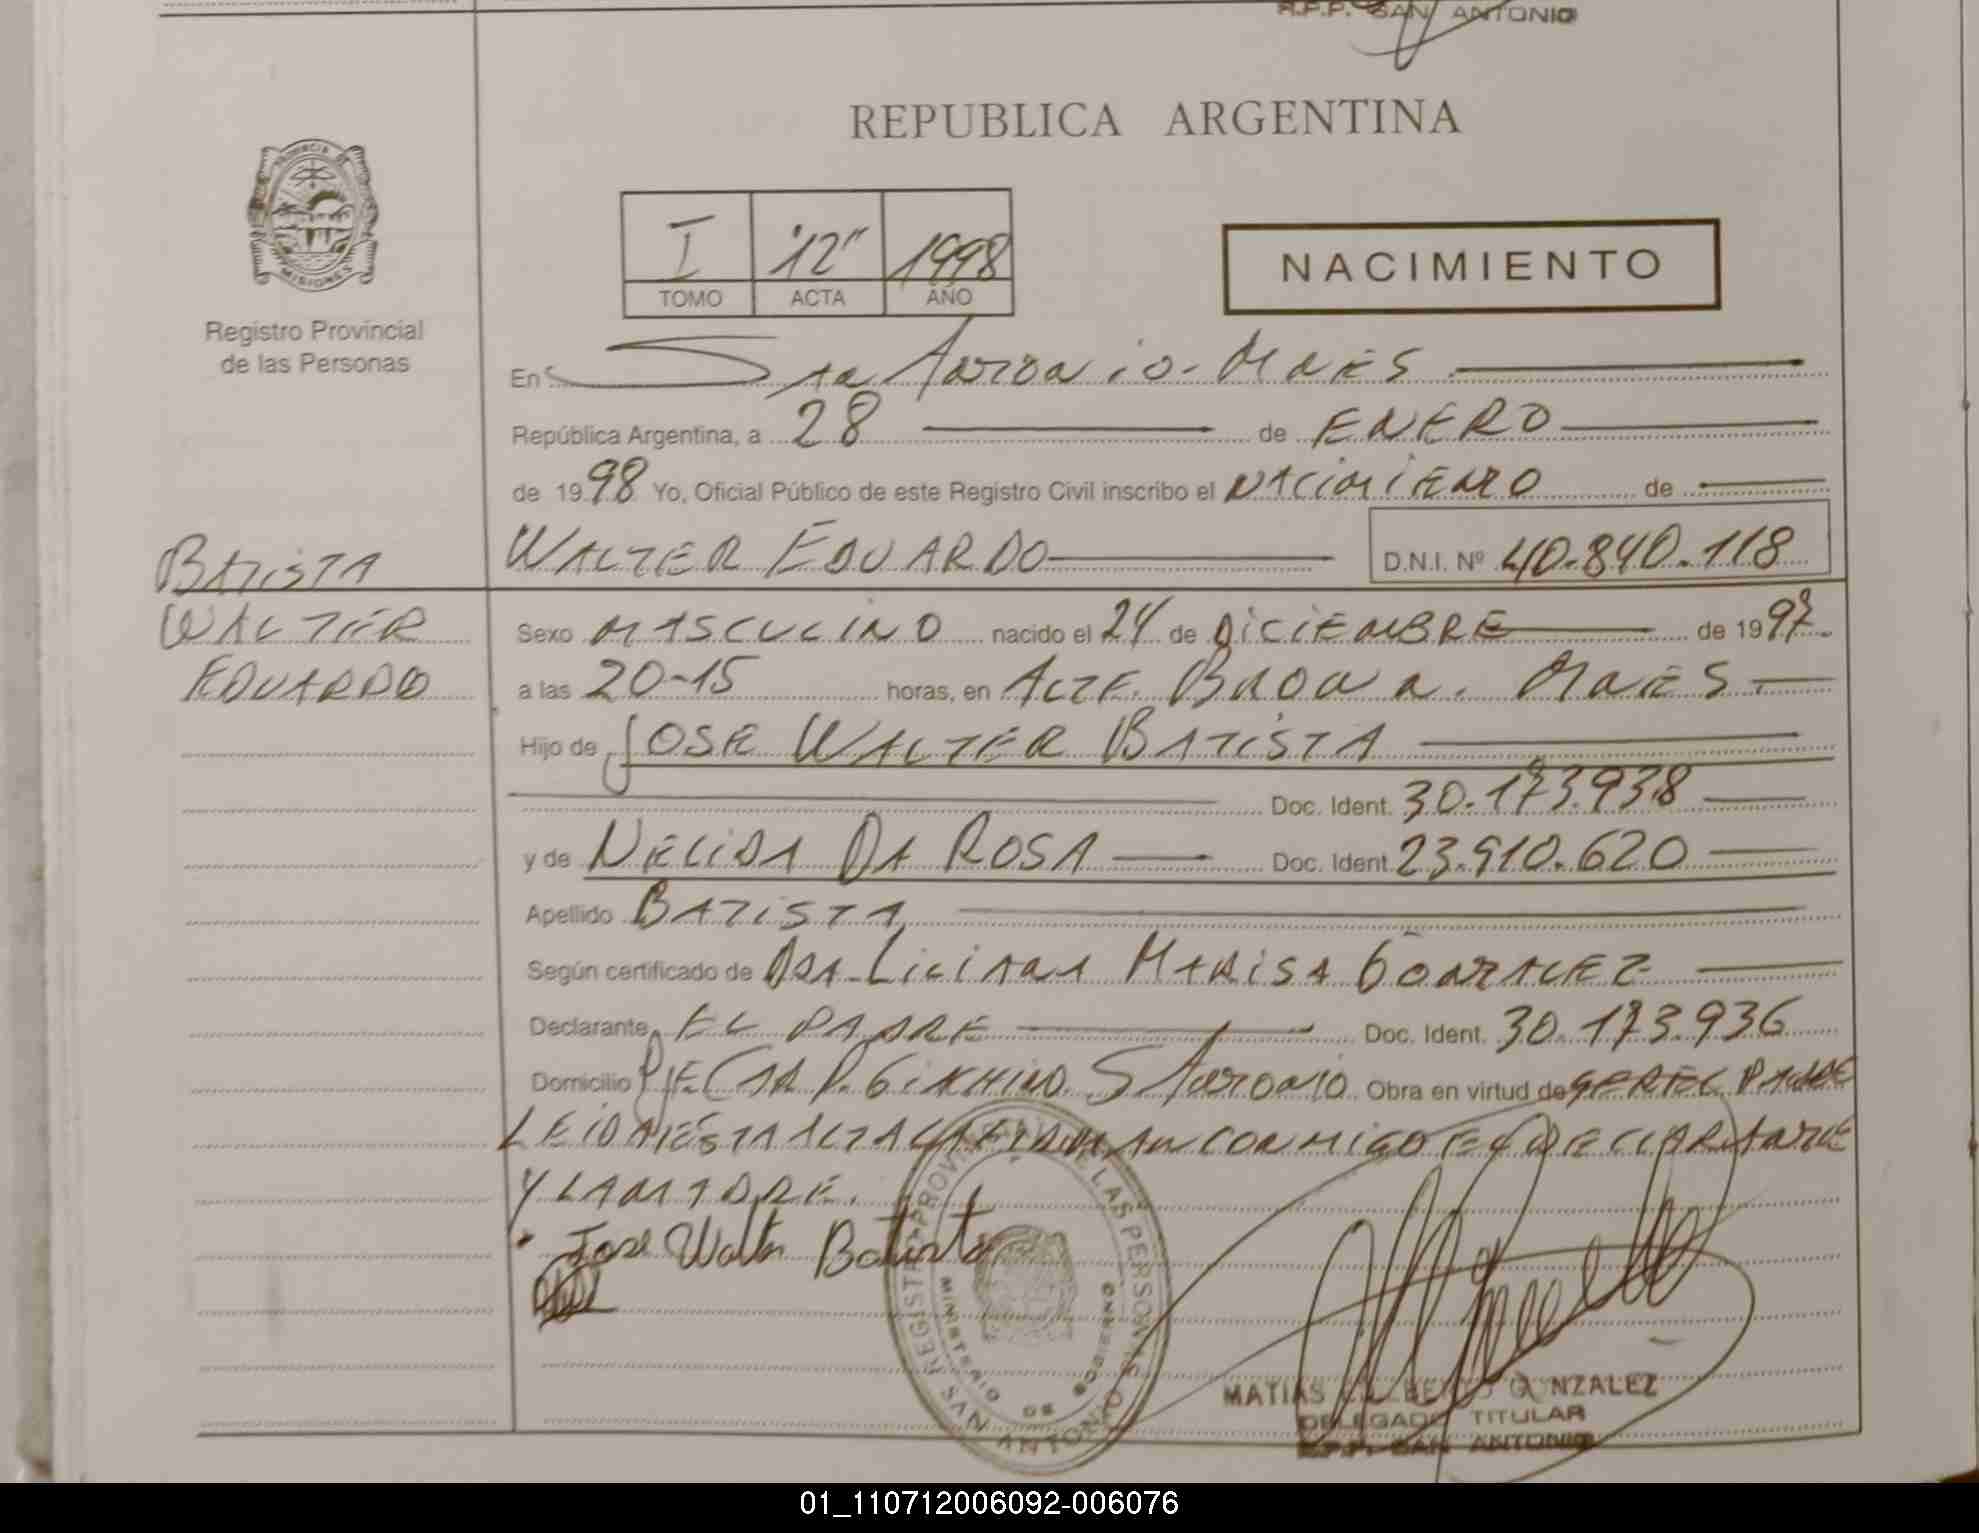 R.P.P. SAN ANTONIO
REPUBLICA ARGENTINA
PROVINCIA DE
MISIONES
Registro Provincial
de las Personas
I "12" 1998
TOMO ACTA AÑO
NACIMIENTO
En San Antonio - Mnes
República Argentina, a 28 de ENERO
de 1998 Yo, Oficial Público de este Registro Civil inscribo el NACIMIENTO de
WALTER EDUARDO D.N.I. Nº 40.840.118
BATISTA
WALTER
EDUARDO
Sexo MASCULINO nacido el 24 de DICIEMBRE de 1997
a las 20-15 horas, en ALTE. BROWN. MNES
Hijo de JOSE WALTER BATISTA
Doc. Ident. 30.173.938
y de NELIDA DA ROSA Doc. Ident. 23.910.620
Apellido BATISTA
Según certificado de DRA. LILIANA MARISA GONZALEZ
Declarante EL PADRE Doc. Ident. 30.173.936
Domicilio S Antonio Obra en virtud de SER EL PADRE
LEIDA ESTA ACTA LA FIRMAN CONMIGO EL DECLARANTE
Y LA MADRE.
Jose Walter Batista
REGISTRO PROVINCIAL DE LAS PERSONAS
SAN ANTONIO
MINISTERIO DE GOBIERNO
MATIAS GONZALEZ
DELEGADO TITULAR
R.P.P. SAN ANTONIO
01_110712006092-006076